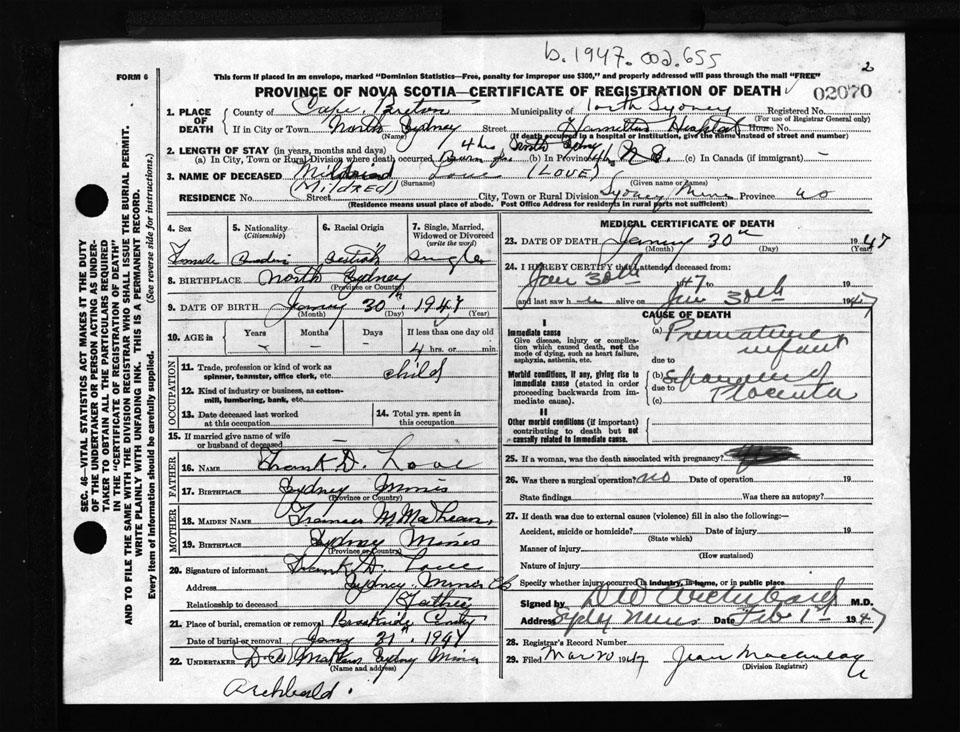 b. 1947.002.655
2
FORM 6
This form if placed in an envelope, marked "Dominion Statistics—Free, penalty for improper use $300," and properly addressed will pass through the mail "FREE"
PROVINCE OF NOVA SCOTIA—CERTIFICATE OF REGISTRATION OF DEATH
02070
1. PLACE OF DEATH
County of Cape Breton Municipality of North Sydney Registered No.
(For use of Registrar General only)
If in City or Town North Sydney Street Hamilton Hospital House No.
(Name) (If death occurred in a hospital or institution, give the name instead of street and number)
2. LENGTH OF STAY (in years, months and days) 4 hrs
(a) In City, Town or Rural Division where death occurred (b) In Province N.S. (c) In Canada (if immigrant) –
3. NAME OF DECEASED Love (LOVE)
(MILDRED) (Surname) (Given name or names)
RESIDENCE No. Street City, Town or Rural Division Sydney Mines Province
(Residence means usual place of abode. Post Office Address for residents in rural parts not sufficient)
SEC. 46—VITAL STATISTICS ACT MAKES IT THE DUTY
OF THE UNDERTAKER OR PERSON ACTING AS UNDER-
TAKER TO OBTAIN ALL THE PARTICULARS REQUIRED
IN THE "CERTIFICATE OF REGISTRATION OF DEATH"
AND TO FILE THE SAME WITH THE DIVISION REGISTRAR WHO SHALL ISSUE THE BURIAL PERMIT.
WRITE PLAINLY WITH UNFADING INK. THIS IS A PERMANENT RECORD.
Every item of information should be carefully supplied. (See reverse side for instructions.)
4. Sex
Female
5. Nationality
(Citizenship)
6. Racial Origin
British
7. Single, Married, Widowed or Divorced
(write the word)
Single
8. BIRTHPLACE North Sydney
(Province or Country)
9. DATE OF BIRTH January 30th 1947
(Month) (Day) (Year)
10. AGE in
Years Months Days If less than one day old
4 hrs. or min.
OCCUPATION
11. Trade, profession or kind of work as
spinner, teamster, office clerk, etc. child
12. Kind of industry or business, as cotton-
mill, lumbering, bank, etc.
13. Date deceased last worked
at this occupation
14. Total yrs. spent in
this occupation
15. If married give name of wife
or husband of deceased –
FATHER
16. NAME Frank D. Love
17. BIRTHPLACE Sydney Mines
(Province or Country)
MOTHER
18. MAIDEN NAME Frances M MacLean
19. BIRTHPLACE Sydney Mines
(Province or Country)
20. Signature of informant Frank D. Love
Address Sydney Mines CB
Relationship to deceased Father
21. Place of burial, cremation or removal Brookside
Date of burial or removal Jany 31st 1947
22. UNDERTAKER Sydney Mines
(Name and address)
Archbald.
MEDICAL CERTIFICATE OF DEATH
23. DATE OF DEATH 30th 1947
(Month) (Day) (Year)
24. I HEREBY CERTIFY that I attended deceased from:
Jan 30th 47 to
and last saw h er alive on Jan 30th 1947
CAUSE OF DEATH
I
Immediate cause
Give disease, injury or compli-
cation which caused death, not the
mode of dying, such as heart failure,
asphyxia, asthenia, etc.
(a) Premature
infant
due to
Morbid conditions, if any, giving rise to
immediate cause (stated in order
proceeding backwards from im-
mediate cause).
(b)
due to Placenta
(c)
II
Other morbid conditions (if important)
contributing to death but not
causally related to immediate cause.
25. If a woman, was the death associated with pregnancy?
26. Was there a surgical operation? no Date of operation 19
State findings Was there an autopsy?
27. If death was due to external causes (violence) fill in also the following:—
Accident, suicide or homicide? Date of injury 19
(State which)
Manner of injury
(How sustained)
Nature of injury
Specify whether injury occurred in industry, in home, or in public place
Signed by D W Archibald M.D.
Address Sydney Mines Date Feb 1st 1947
28. Registrar's Record Number
29. Filed Mar 20 1947 Jean Macaulay
(Division Registrar)